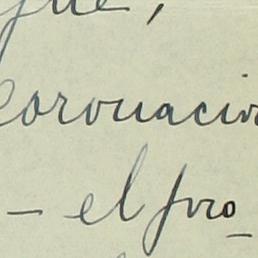 que,
coronación
- el pro_